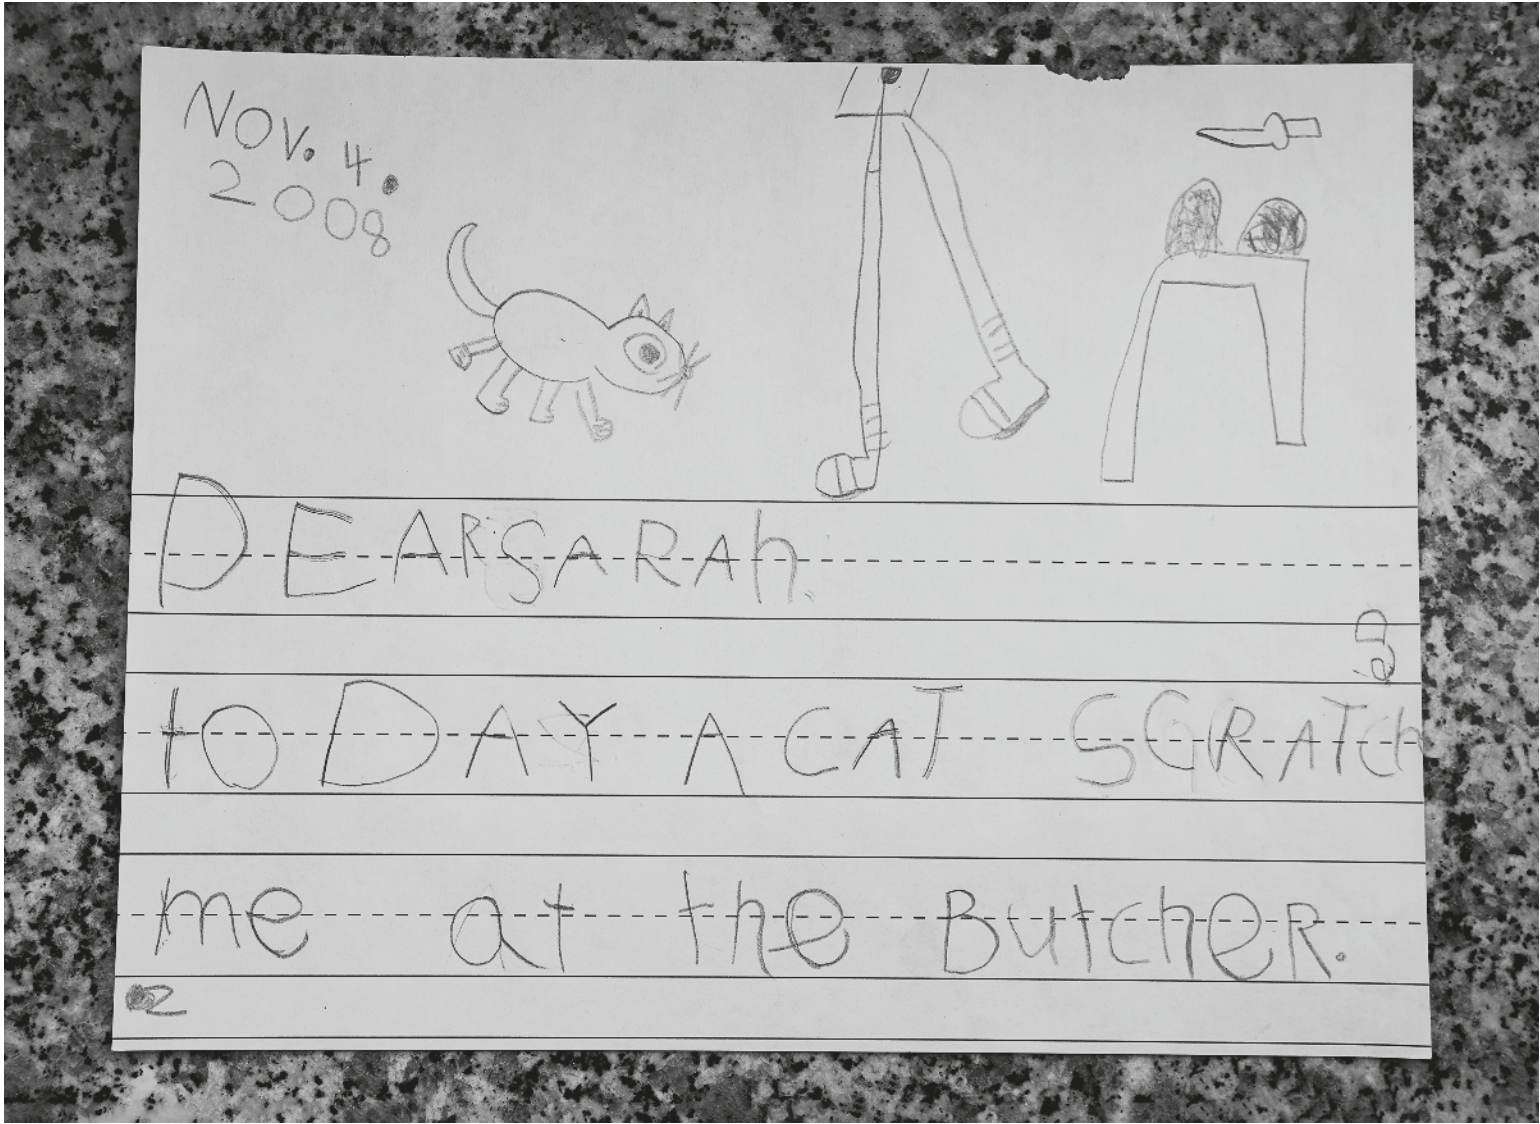 NOV. 4.
2008
DEAR SARAh.
toDAY A CAT SCRATCh
ed
me at the ButcheR.